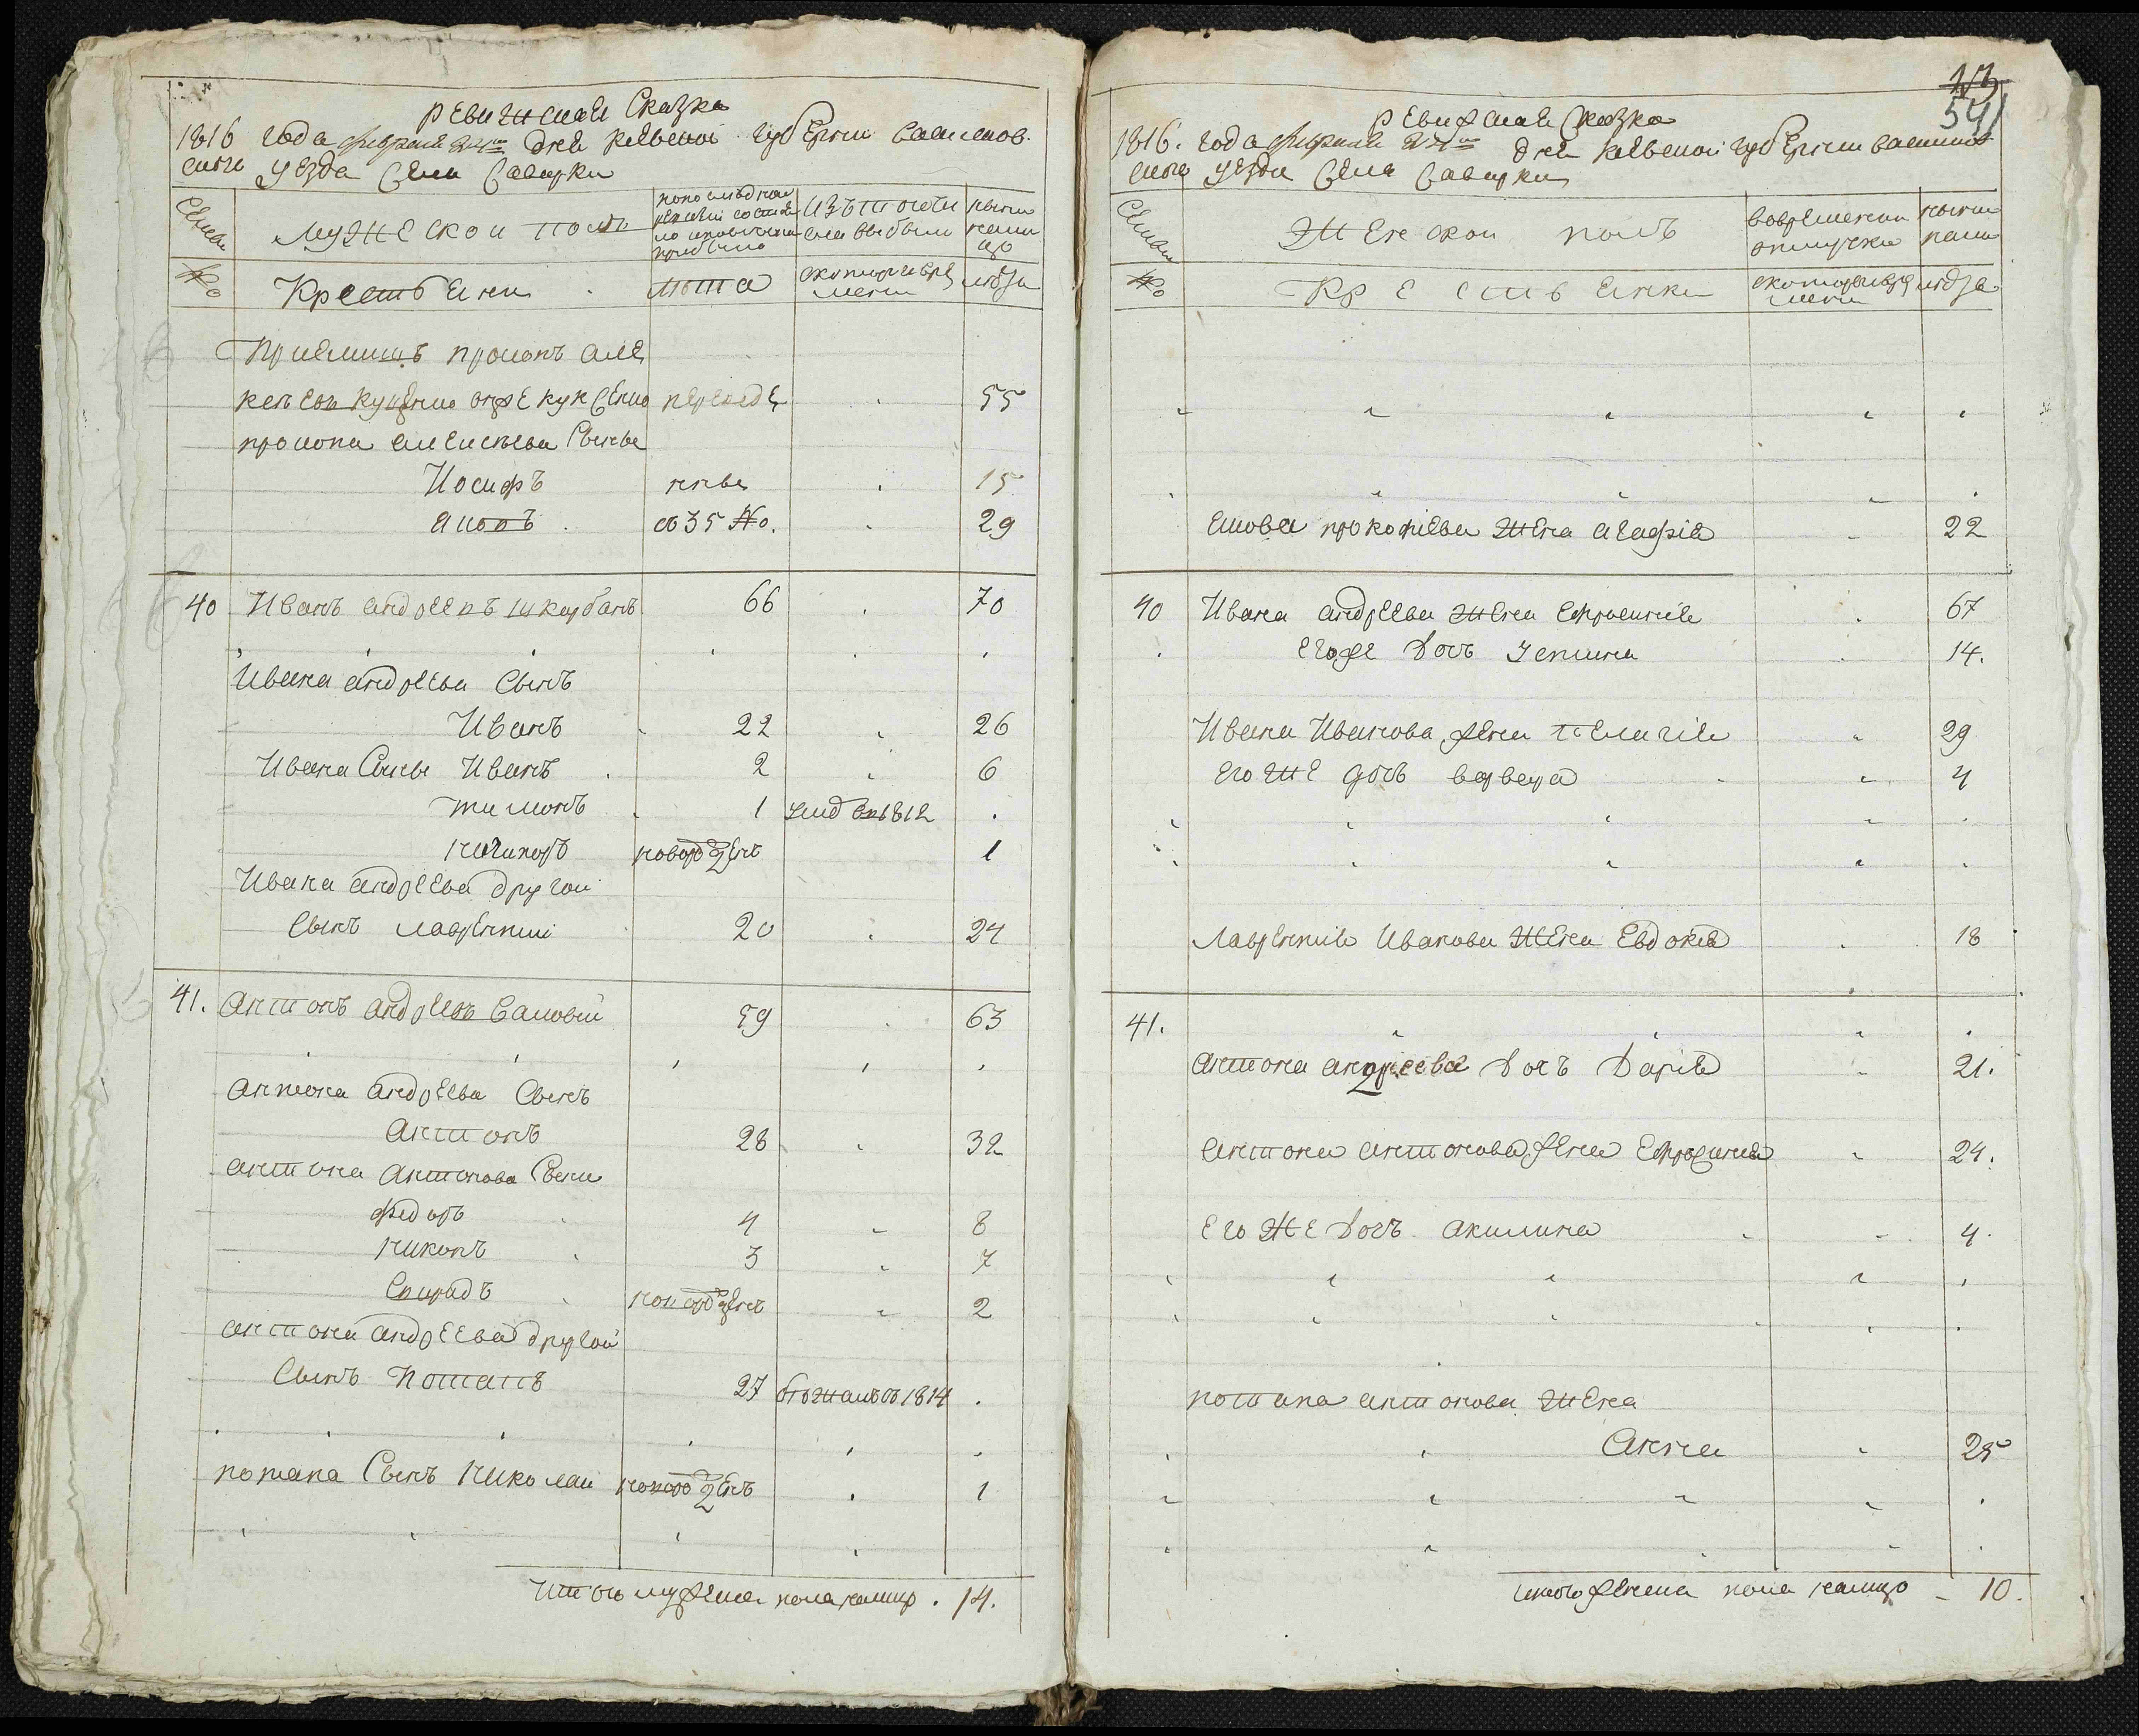 ревижская Сказка
1816 года февраля 24го дня киевской губернии васильков
скаго уезда Села Саварки
Семьи
мужеской полъ
по последней ревизии состояло и после прибыло
изъ того числа выбыло
ныне налицо
№
Крестьяни
лета
с которого времени
лета
приемышъ прокопъ але
55
Иосифъ
15
аковъ
со 35 №.
29
40 Иванъ андреевъ шкарбанъ 66 70
Ивана андреева Сынъ
Иванъ 22 26
Ивана Сыны Иванъ 2 6
тимонъ 1 умеръ 1812
никифоръ новорожденъ 1
Ивана андреева другой
Сынъ лаврентий 20 24
41. антонъ андреевъ Саловый 59 63
антона андреева Сынъ
антонъ 28 32
антона антонова Сыны
федоръ 4 8
никонъ 3 7
Спиридъ новорожденъ 2
антона андреева другой
Сынъ потапъ 27 бежалъ въ 1814
потапа Сынъ николай новорожденъ 1
итого мужеска пола налицо . 14.
13
541
ревижская Сказка
1816. года февраля 24го дня киевской губернии васильков
скаго уезда Села Саварки
Семьи
Женской полъ
во временной отлучке
ныне налицо
№
Крестьянки
с которого времени
лета
акова прокофиева жена агафия 22
40 Ивана андреева жена Ефросиния 67
его же дочь устина 14.
Ивана Иванова жена пелагия 29
его же дочь варвара 4
Лаврентия Иванова жена Евдокия 18
41.
антона андреева дочь Дария 21.
антона антонова жена Ефросиния 24.
его же дочь акилина 4.
потапа антонова жена
анна 25
итого женска пола налицо - 10.